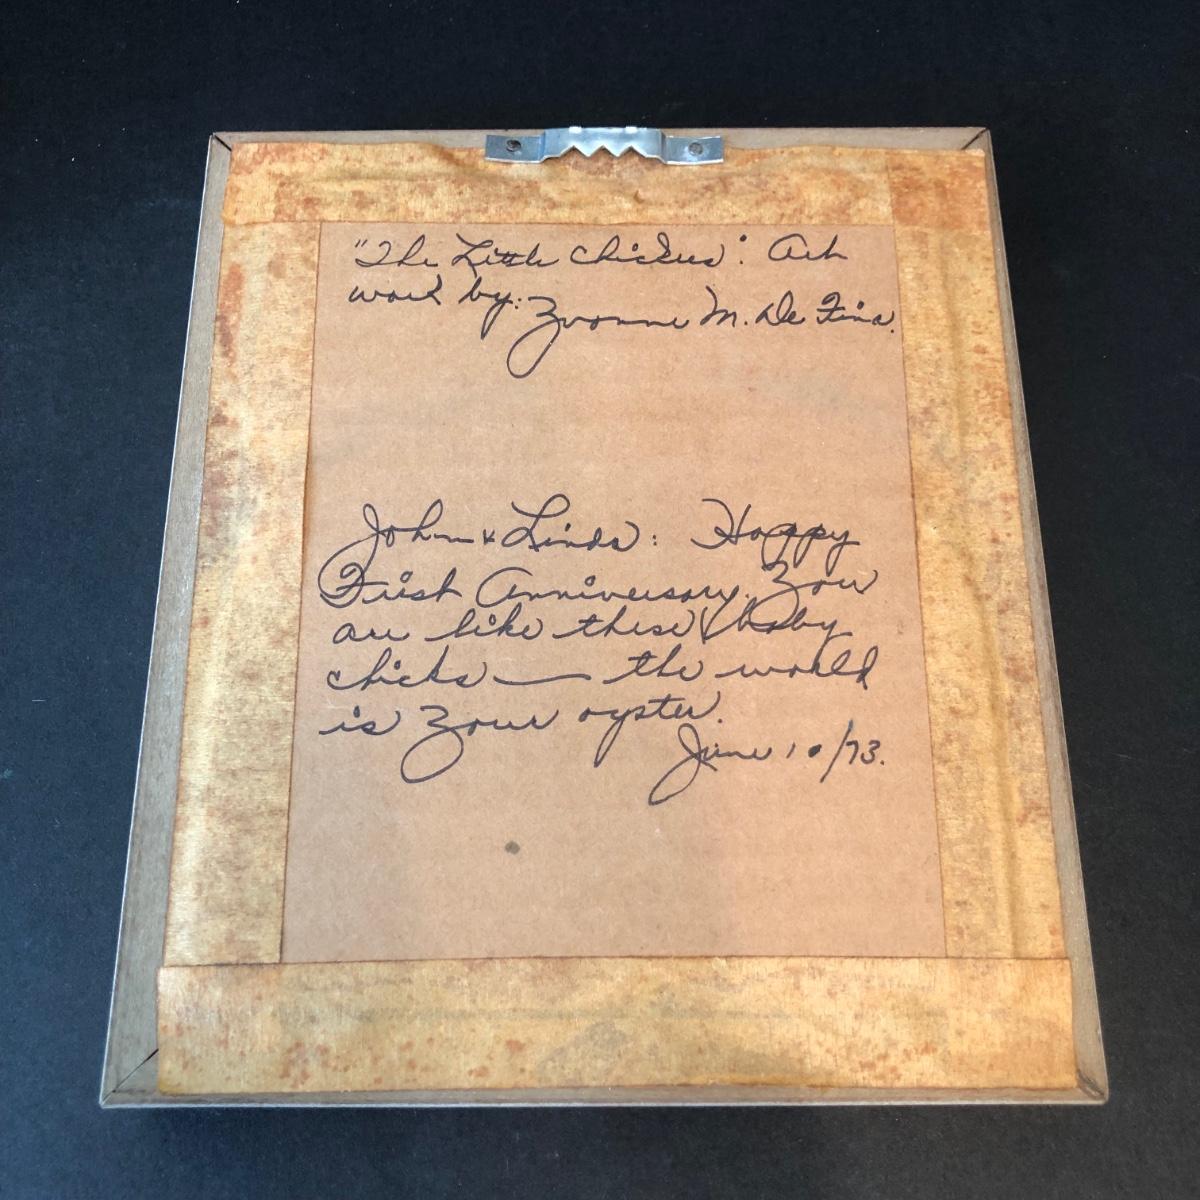 "The Little Chickens". Art
work by: Yvonne M. De Fina.
John & Linda: Happy
First Anniversary. Your
are like these baby
chicks — the world
is your oyster.
June 10/73.